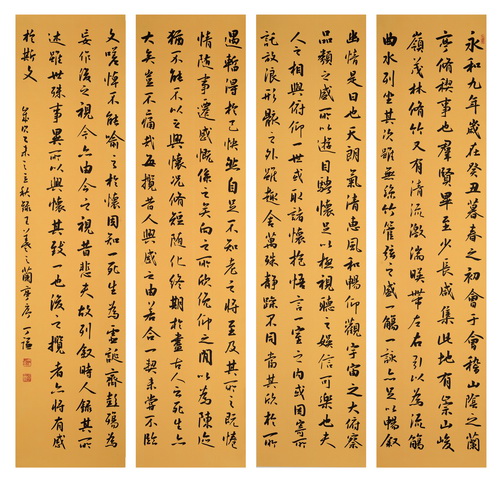 永和九年歲在癸丑暮春之初會于會稽山陰之蘭
亭脩稧事也群賢畢至少長咸集此地有崇山峻
嶺茂林脩竹又有清流激湍暎帶左右引以為流觴
曲水列坐其次雖無絲竹管弦之盛一觴一詠亦足以暢叙
幽情是日也天朗氣清惠風和暢仰觀宇宙之大俯察
品類之盛所以遊目騁懷足以極視聽之娛信可樂也夫
人之相與俯仰一世或取諸懷抱悟言一室之內或因寄所
託放浪形骸之外雖趣舍萬殊靜躁不同當其欣於所
遇暫得於己快然自足不知老之將至及其所之既惓
情隨事遷感慨係之矣向之所欣俛仰之間以為陳迹
猶不能不以之興懷況脩短隨化終期於盡古人云死生亦
大矣豈不痛哉每攬昔人興感之由若合一契未嘗不臨
文嗟悼不能喻之於懷固知一死生為虛誕齊彭殤為
妄作後之視今亦由今之視昔悲夫故列叙時人錄其所
述雖世殊事異所以興懷其致一也後之攬者亦將有感
於斯文 歲次乙未之立秋錄王羲之蘭亭序